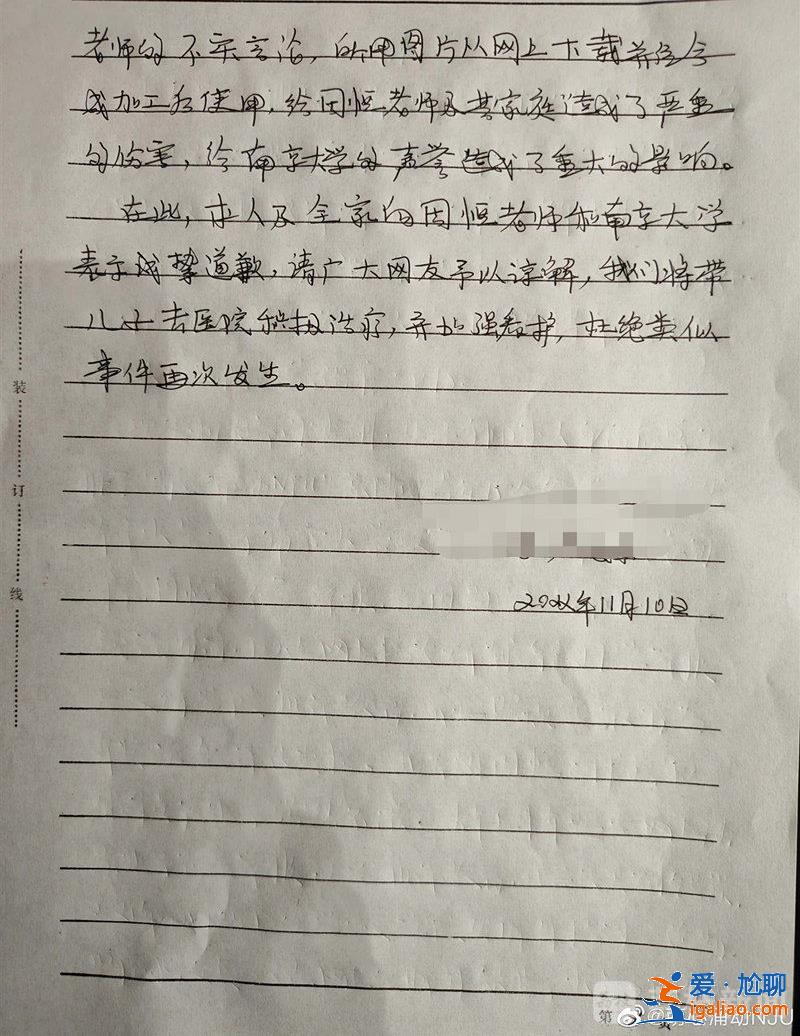 老师的不实言论，所用图片从网上下载并经合
成加工后使用，给田恒老师及其家庭造成了严重
的伤害，给南京大学的声誉造成了重大的影响。
在此，本人及全家向田恒老师和南京大学
表示诚挚道歉，请广大网友予以谅解，我们将带
儿子去医院积极治疗，并加强看护，杜绝类似
事件再次发生。
装
订
线
年11月10日
爱·尬聊
igaliao.com
第
页
NJU